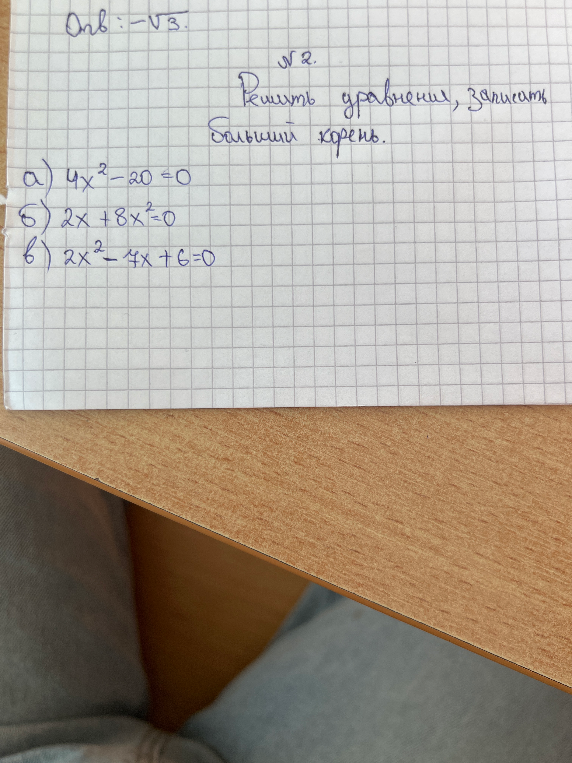 Отв: -√3.
N2.
Решить уравнения, записать
больший корень.
а) 4x² - 20 = 0
б) 2x + 8x² = 0
в) 2x² - 7x + 6 = 0